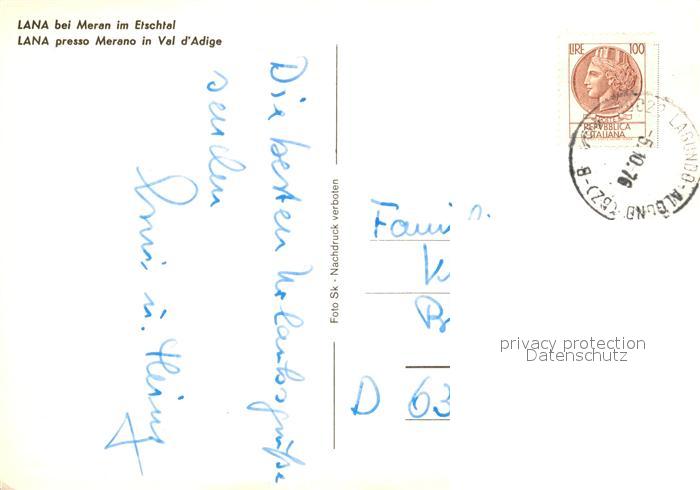 LANA bei Meran im Etschtal
LANA presso Merano in Val d'Adige
Die besten Urlaubsgrüße
senden
u. Heinz
Foto Sk - Nachdruck verboten
LIRE 100
POSTE
REPVBBLICA
ITALIANA
LAGUNDO-ALGUND (BZ)-B
-5.10.76
Fami
D 63
privacy protection
Datenschutz